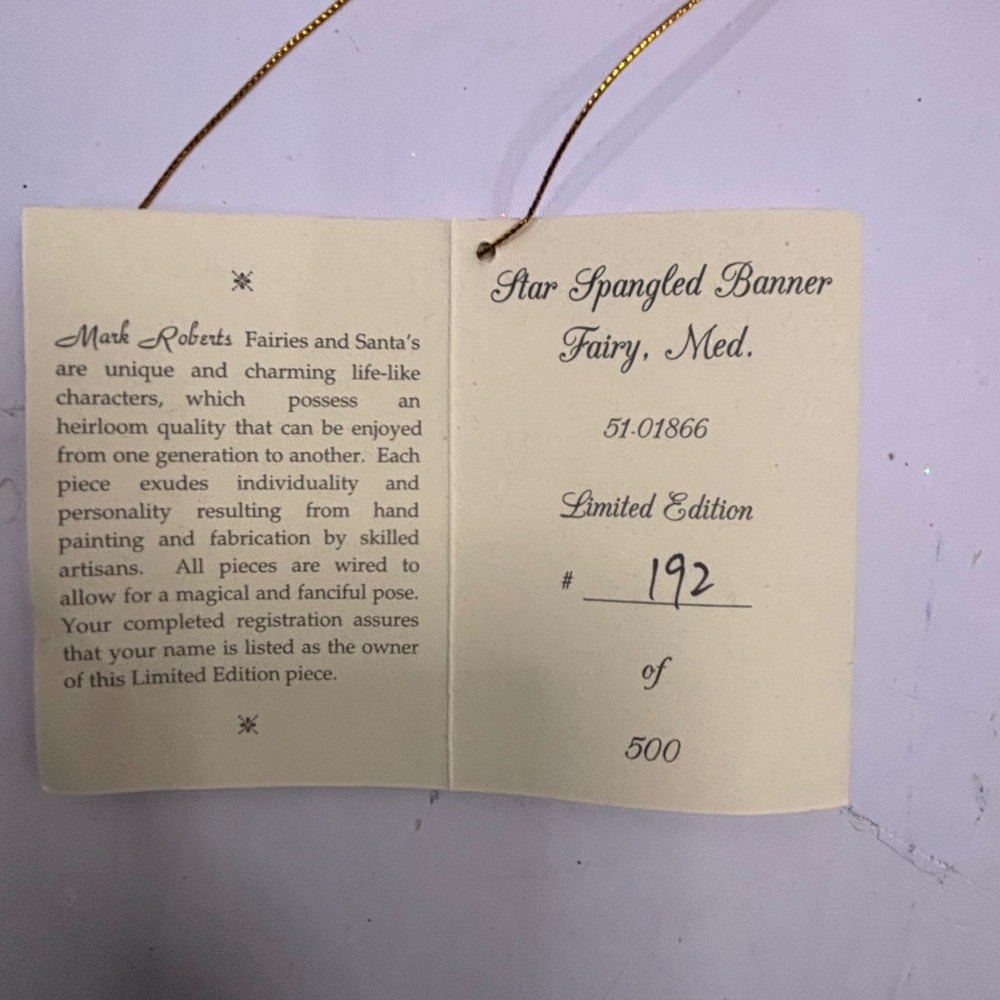 Mark Roberts Fairies and Santa's
are unique and charming life-like
characters, which possess an
heirloom quality that can be enjoyed
from one generation to another. Each
piece exudes individuality and
personality resulting from hand
painting and fabrication by skilled
artisans. All pieces are wired to
allow for a magical and fanciful pose.
Your completed registration assures
that your name is listed as the owner
of this Limited Edition piece.
Star Spangled Banner
Fairy, Med.
51-01866
Limited Edition
# 192
of
500